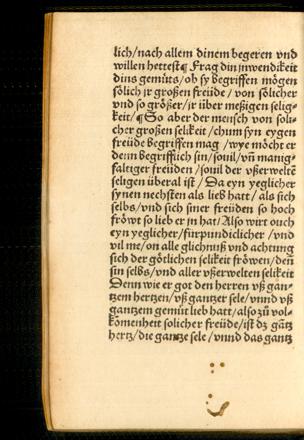 lich/nach allem dinem begeren vnd
willen hettest¶ Frag din jnwendikeit
dins gemüts/ob sy begriffen mögen
sölich jr großen freüde/von sölicher
vnd so größer/jr über meßigen selig-
keit/¶So aber der mensch von söli-
cher großen selikeit/chum syn eygen
freüde begriffen mag/wye möcht er
denn begrifflich sin/souil/vñ manig-
faltiger freüden/souil der vßerwelten
seligen überal ist/Da eyn yeglicher
synen nechsten als lieb hatt/als sich
selbs/vnd sich siner freüden so hoch
fröwt so lieb er jn hat/Also wirt ouch
eyn yeglicher/fürpundiclicher/vnd
vil me/on alle glichnuß vnd achtung
sich der götlichen selikeit fröwen/den̄
sin selbs/vnd aller vßerwelten selikeit
Denn wie er got den herren vß gan-
tzem hertzen/vß gantzer sele/vnnd vß
gantzem gemüt lieb hatt/also zů vol-
kōmenheit solicher freüde/ist dz gātz
hertz/die gantze sele/vnnd das gantz